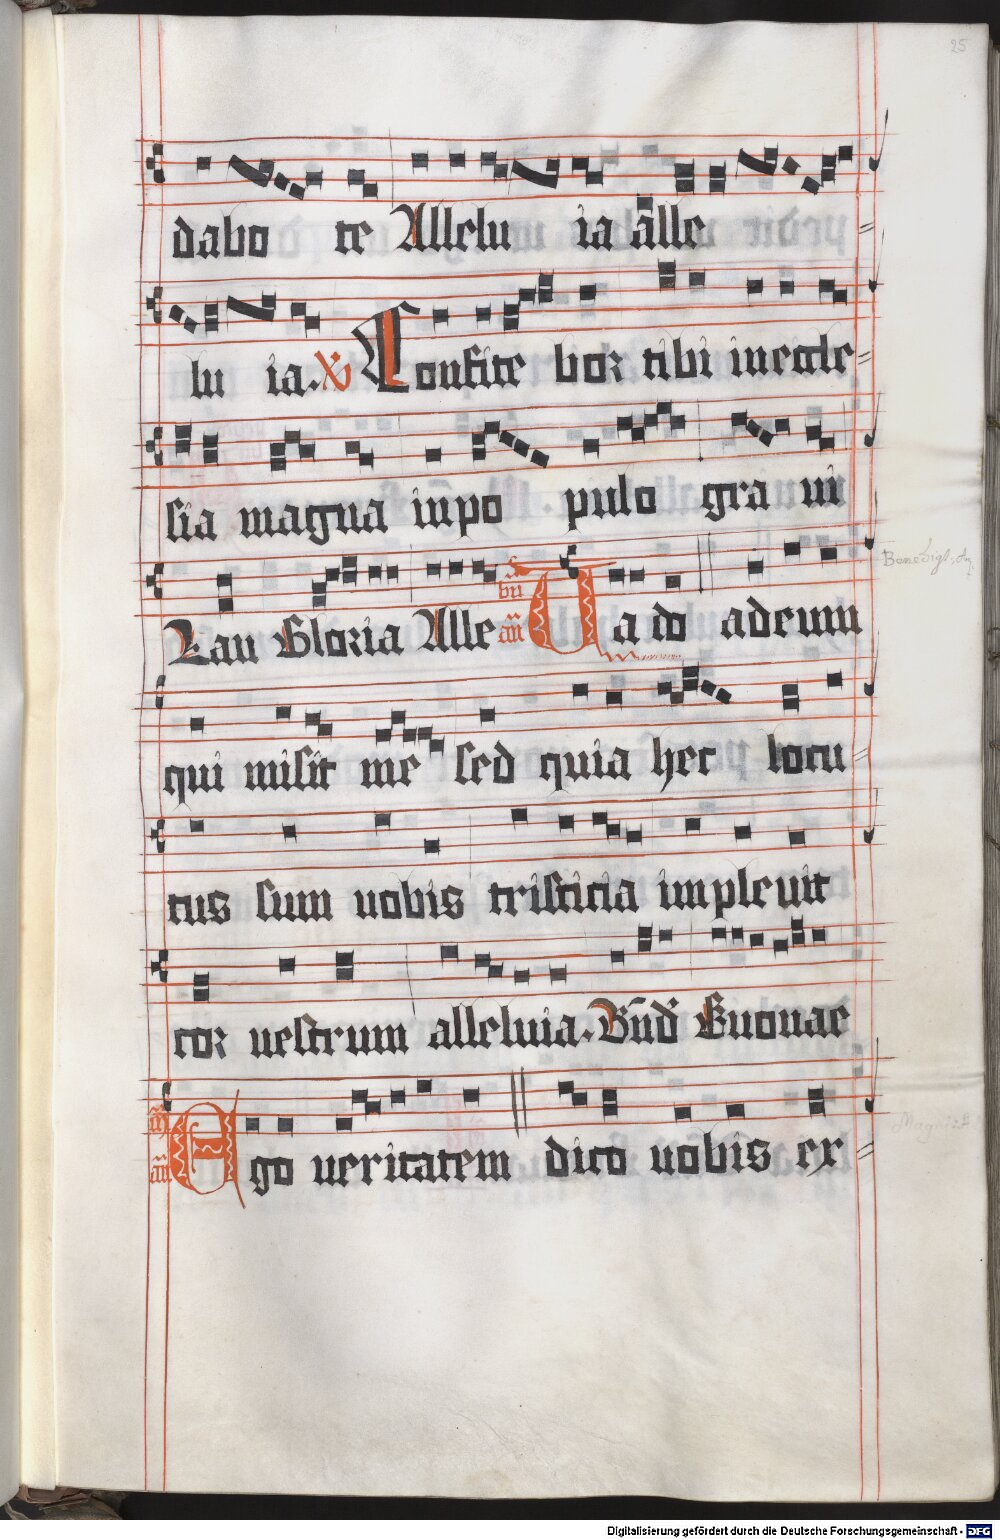 25
dabo te Allelu ia alle
lu ia. Confite bor tibi in eccle
sia magna in po pulo gra ui
Lau Gloria Alle bñ añ Uado ad eum
Benedigt. An.
qui misit me sed quia hec locu
tus sum uobis tristicia impleuit
cor uestrum alleluia. Bñd Euouae
m̃ añ Ego ueritatem dico uobis ex
Magnif
Digitalisierung gefördert durch die Deutsche Forschungsgemeinschaft - DFG